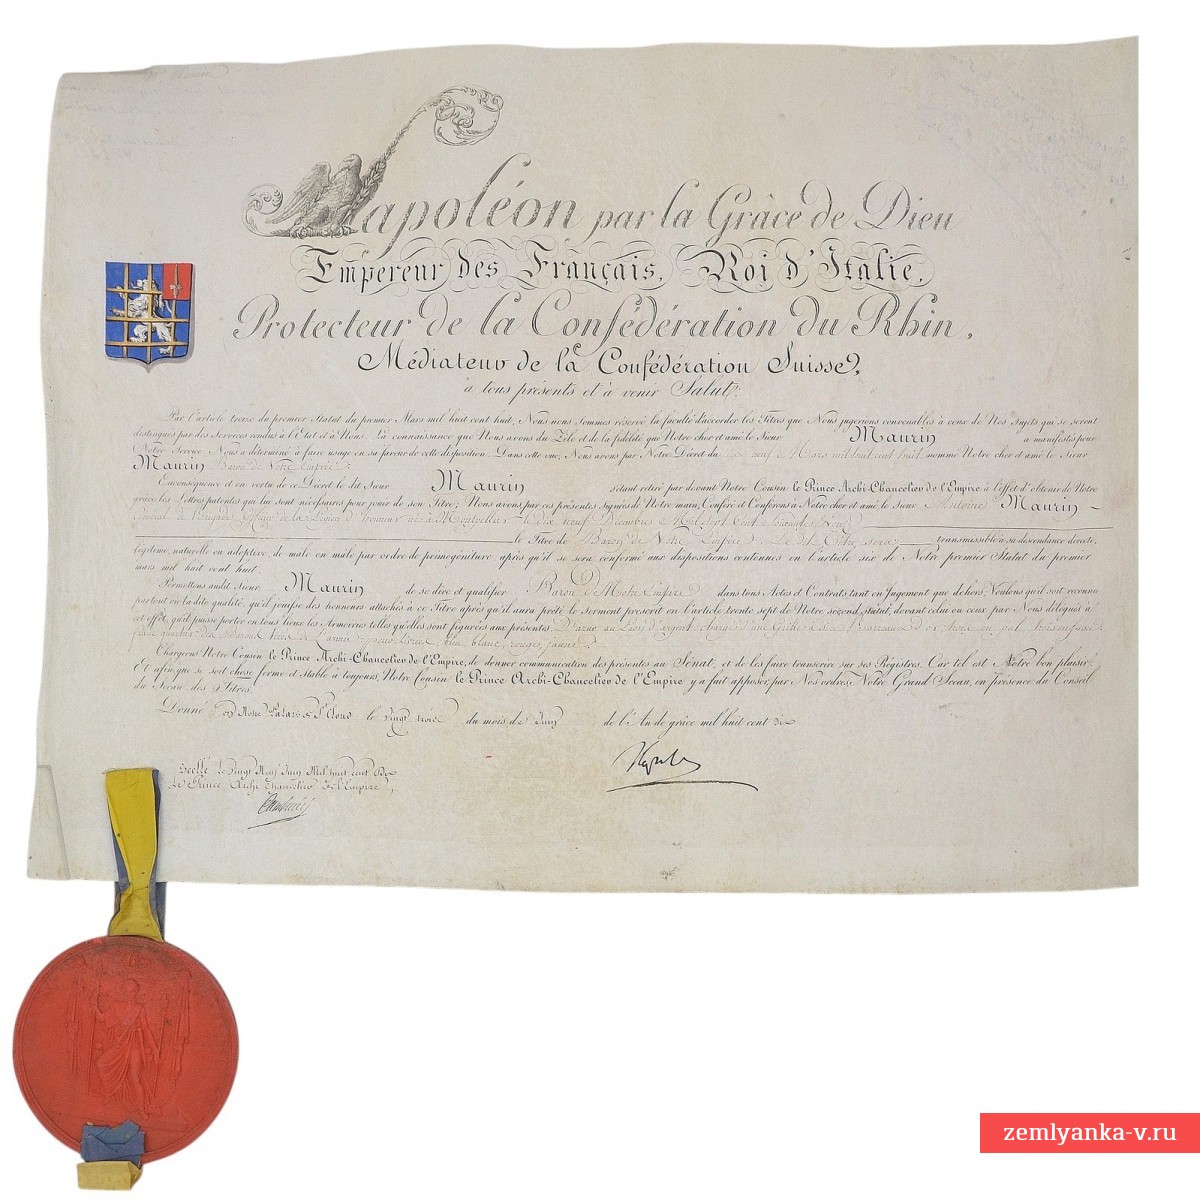 Napoléon par la Grâce de Dieu
Empereur des Français, Roi d'Italie,
Protecteur de la Confédération du Rhin,
Médiateur de la Confédération Suisse,
à tous présents et à venir Salut:
Par l'article treize du premier Statut du premier Mars mil huit cent huit, Nous nous sommes réservé la faculté d'accorder les Titres que Nous jugerions convenables à ceux de Nos Sujets qui se seront
distingués par des Services rendus à l'Etat et à Nous. La connaissance que Nous avons du Zèle et de la fidélité que Notre cher et amé le Sieur Maurin a manifestés pour
Notre Service Nous a déterminé à faire usage en sa faveur de cette disposition. Dans cette vue, Nous avons par Notre Décret du dix neuf Mars mil huit cent huit nommé Notre cher et amé le Sieur
Maurin Baron de Notre Empire.
En conséquence et en vertu de ce Décret le dit Sieur Maurin s'étant retiré par devant Notre Cousin le Prince Archi-Chancelier de l'Empire à l'effet d'obtenir de Notre
grâce les Lettres patentes qui lui sont nécessaires pour jouir de son Titre; Nous avons par ces présentes Signées de Notre main, Conféré & Conférons à Notre cher et amé le Sieur Antoine Maurin
Général de Brigade, Officier de la Légion d'honneur né à Montpellier le dix neuf Décembre Mil Sept Cent
le Titre de Baron de Notre Empire. Le dit Titre sera transmissible à sa descendance directe,
légitime, naturelle ou adoptive, de mâle en mâle par ordre de primogéniture après qu'il se sera conformé aux dispositions contenues en l'article six de Notre premier Statut du premier
mars mil huit cent huit.
Permettons audit Sieur Maurin de se dire et qualifier Baron de Notre Empire dans tous Actes et Contrats tant en Jugement que dehors; Voulons qu'il soit reconnu
partout en la dite qualité, qu'il jouisse des honneurs attachés à ce Titre après qu'il aura prêté le serment prescrit en l'article trente sept de Notre second statut, devant celui ou ceux par Nous délégués à
cet effet, qu'il puisse porter en tous lieux les Armoiries telles qu'elles sont figurées aux présentes D'azur au Lion d'argent, chargé d'une Grille de Barreaux d'or, trois en pal,
franc quartier des Barons tirés de l'armée; pour Livrée, bleu, blanc, rouge, jaune.
Chargeons Notre Cousin le Prince Archi-Chancelier de l'Empire, de donner communication des présentes au Sénat, et de les faire transcrire sur ses Régistres. Car tel est Notre bon plaisir:
Et afin que ce soit chose ferme et stable à toujours, Notre Cousin le Prince Archi-Chancelier de l'Empire y a fait apposer, par Nos ordres, Notre Grand Sceau, en présence du Conseil
du Sceau des Titres.
Donné en Notre Palais de St Cloud le vingt trois du mois de Juin de l'An de grâce mil huit cent dix
Scellé le Vingt Neuf Juin Mil huit cent Dix
Le Prince Archi Chancelier de l'Empire,
zemlyanka-v.ru